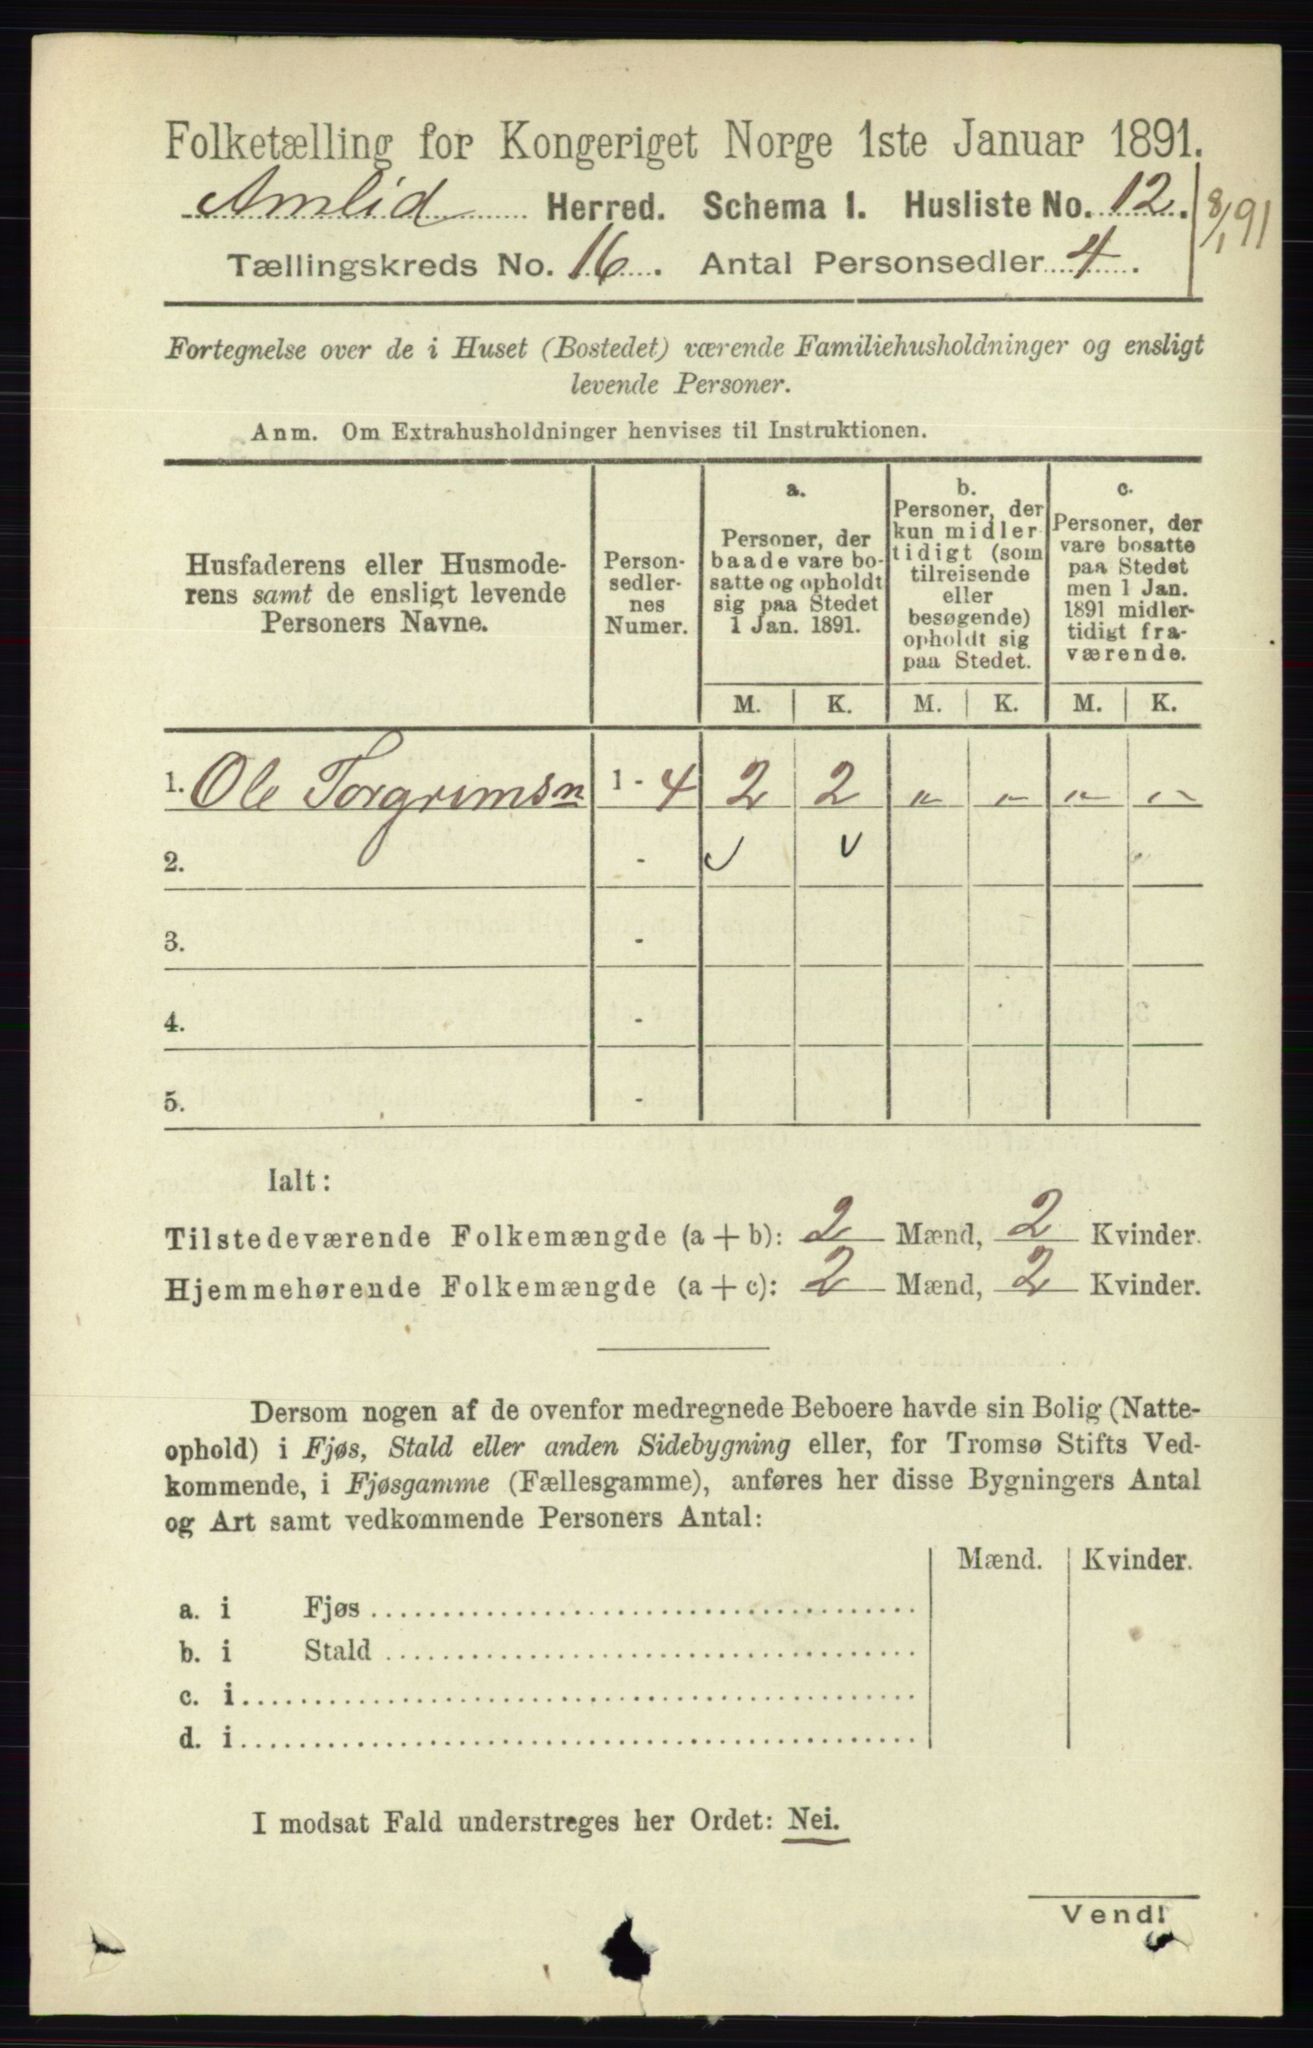 Folketælling for Kongeriget Norge 1ste Januar 1891.
Amlid Herred. Schema 1. Husliste No. 12. 8/1 91
Tællingskreds No. 16. Antal Personsedler 4.
Fortegnelse over de i Huset (Bostedet) værende Familiehusholdninger og ensligt
levende Personer.
Anm. Om Extrahusholdninger henvises til Instruktionen.
Husfaderens eller Husmode-
rens samt de ensligt levende
Personers Navne.
Person-
sedler-
nes
Numer.
a.
Personer, der
baade vare bo-
satte og opholdt
sig paa Stedet
1 Jan. 1891.
b.
Personer, der
kun midler
tidigt (som
tilreisende
eller
besøgende)
opholdt sig
paa Stedet.
c.
Personer, der
vare bosatte
paa Stedet
men 1 Jan.
1891 midler-
tidigt fra-
værende.
M. K. M. K. M. K.
1. Ole Torgrimsn 1 - 4 2 2 " " " "
2. - ✓ ✓
3. -
4. -
5. -
Ialt:
Tilstedeværende Folkemængde (a + b): 2 Mænd, 2 Kvinder.
Hjemmehørende Folkemængde (a + c): 2 Mænd, 2 Kvinder.
Dersom nogen af de ovenfor medregnede Beboere havde sin Bolig (Natte-
ophold) i Fjøs, Stald eller anden Sidebygning eller, for Tromsø Stifts Ved-
kommende, i Fjøsgamme (Fællesgamme), anføres her disse Bygningers Antal
og Art samt vedkommende Personers Antal:
Mænd. Kvinder.
a. i Fjøs
b. i Stald
c. i
d. i
I modsat Fald understreges her Ordet: Nei.
Vend!